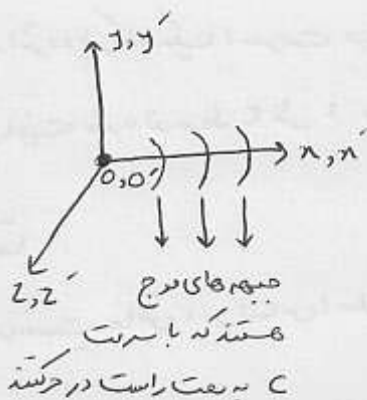 y, y′
x, x′
O, O′
z, z′
جبهه های موج
هستند که با سرعت
C به سمت راست در حرکتند